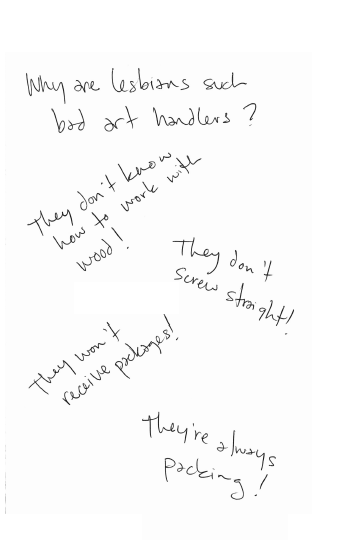 Why are lesbians such
bad art handlers?
They don't know
how to work with
wood!
They don't
screw straight!
They won't
receive packages!
They're always
packing!